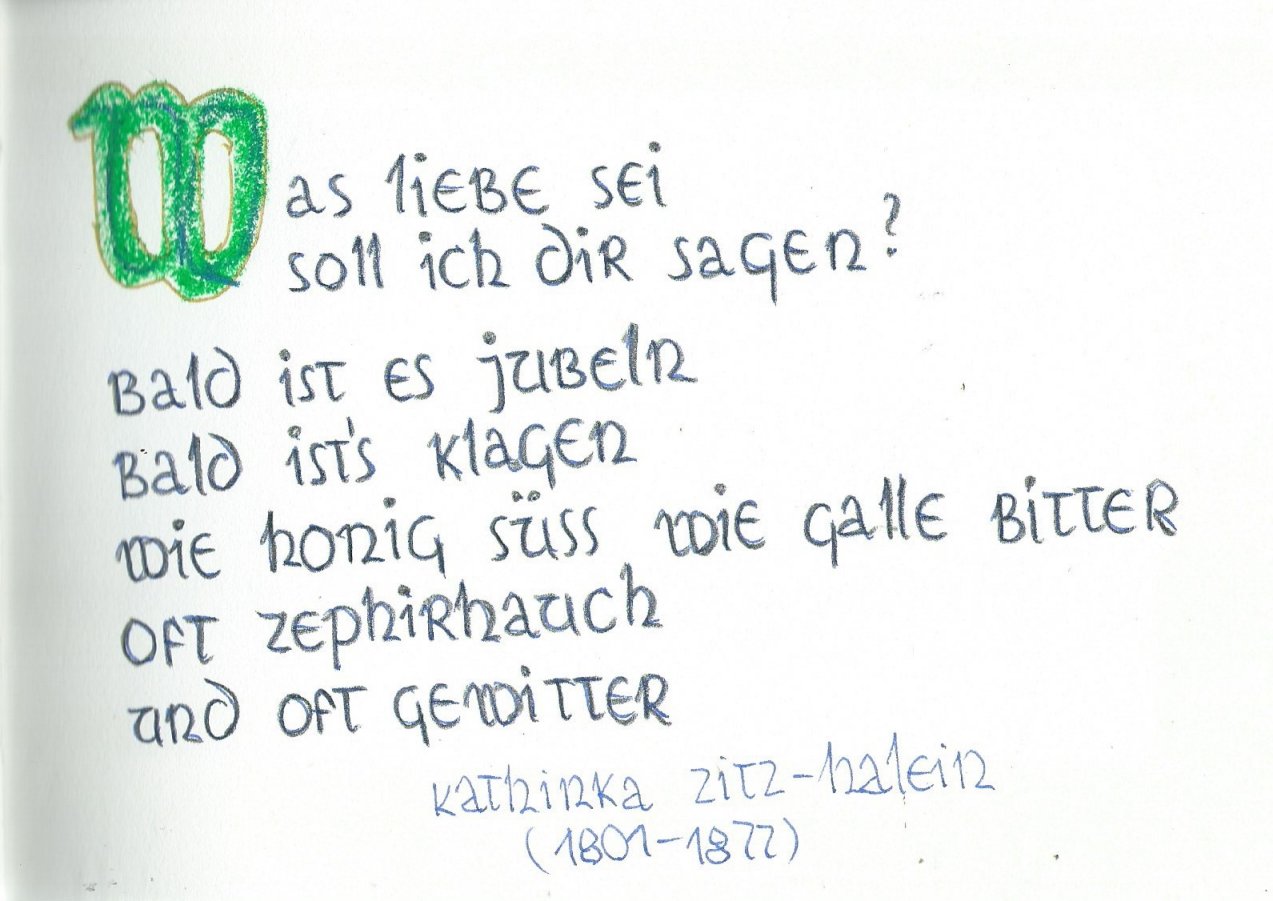 Was liebe sei
soll ich dir sagen?
Bald ist es jubeln
Bald ist's klagen
wie honig süss wie galle bitter
oft zephirhauch
und oft gewitter
kathinka zitz-halein
(1801-1877)